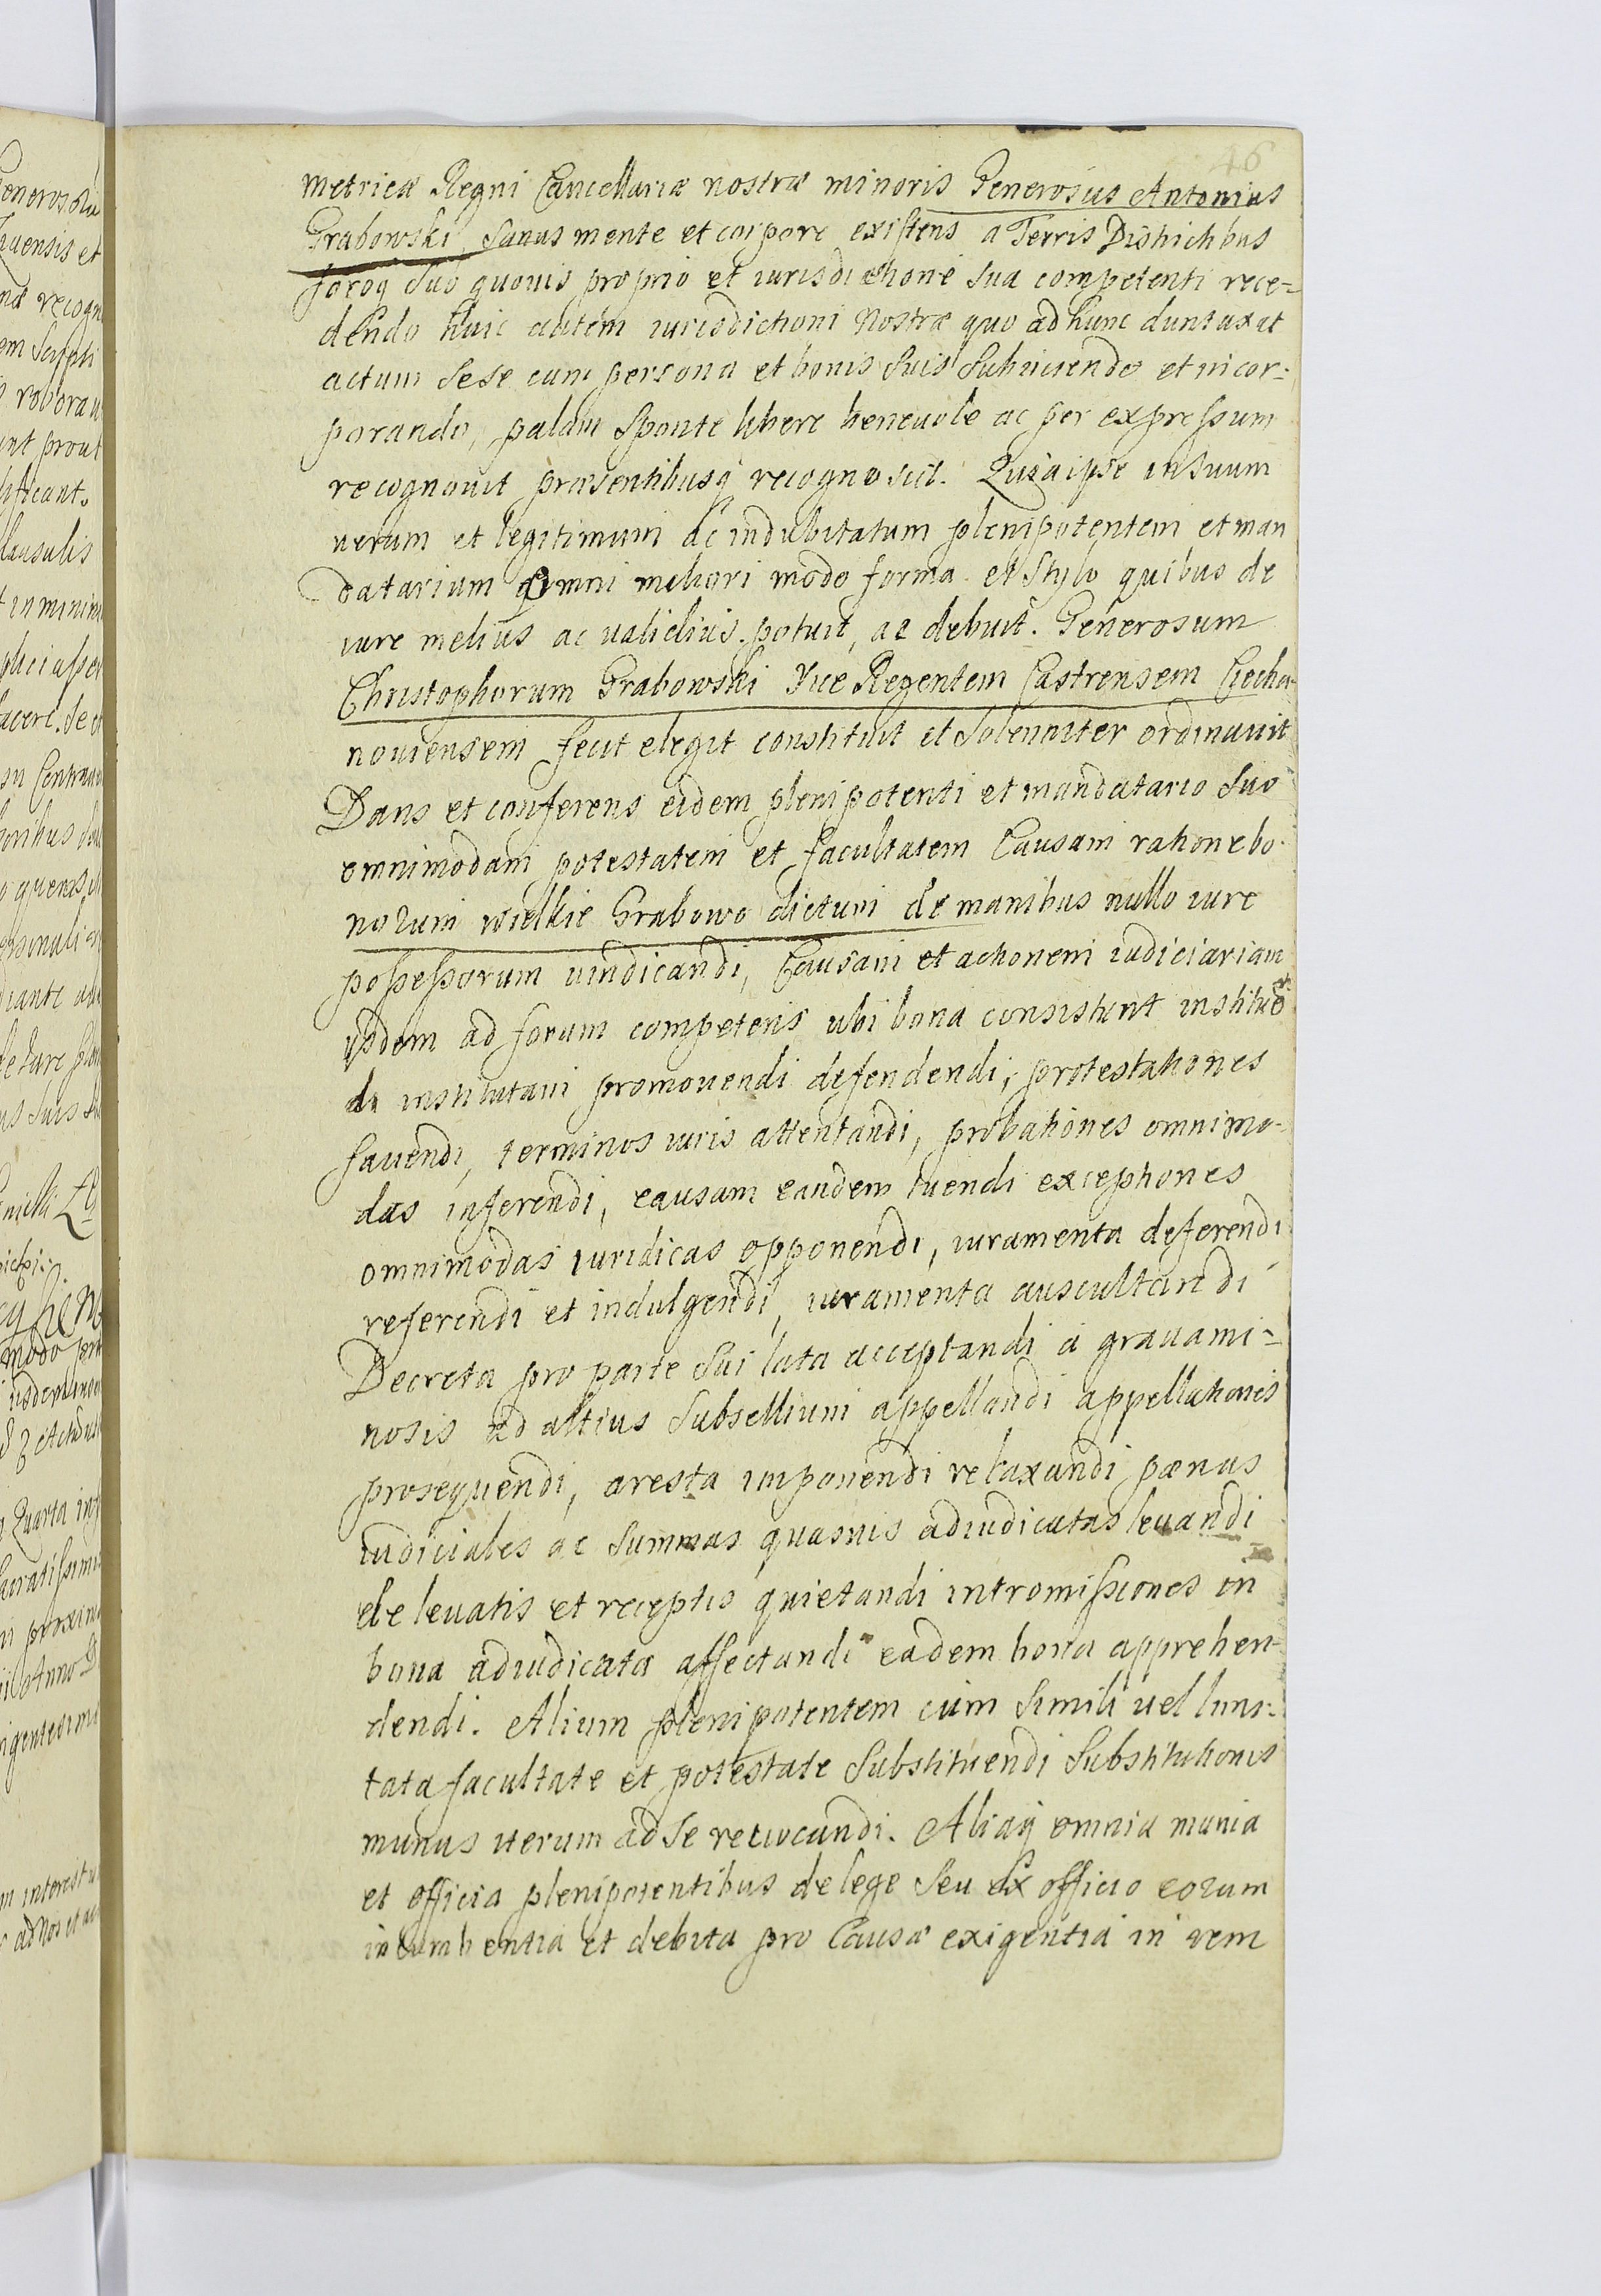 46
metricæ Regni Cancellariæ nostræ minoris Generosus Antonius
Grabowski, Sanus mente et corpore existens a Terris Districtibus
foroq suo quouis proprio et iurisdictione sua competenti rece=
dendo huic autem iurisdictioni Nostræ quo ad hunc duntaxat
actum sese cum persona et bonis suis subiiciendo et incor=
porando, palam sponte libere beneuole ac per expressum
recognouit præsentibusq recognoscit. Quia ipse in suum
uerum et legitimum ac indubitatum plenipotentem et man
datarium omni meliori modo forma et stylo quibus de
iure melius ac ualidius potuit, ac debuit. Generosum
Christophorum Grabowski Vice Regentem Castrensem Ciecha-
nouiensem fecit elegit constituit et solenniter ordinauit
Dans et conferens eidem plenipotenti et mandatario suo
omnimodam potestatem et facultatem Causam ratione bo-
norum wielkie Grabowo dictum de manibus nullo iure
possessorum uindicandi, Causam et actionem iudiciariam
iisdem ad forum competens ubi bona consistunt institue
di institutam promouendi defendendi, protestationes
fauendi, terminos iuris attentandi, probationes omnimo-
das inferendi, causam eandem tuendi exceptiones
omnimodas iuridicas opponendi, iuramenta deferendi
referendi et indulgendi, iuramenta auscultandi
Decreta pro parte sui lata acceptandi a grauami=
nosis ad altius subsellium appellandi appellationes
prosequendi, aresta imponendi relaxandi pœnas
iudiciales ac summas quasuis adiudicatas leuandi
de leuatis et receptis quietandi intromissiones in
bona adiudicata affectandi eadem bona apprehen-
dendi. Alium plenipotentem cum simili uel limi=
tata facultate et potestate substituendi substitutionis
munus iterum ad se reuocandi. Aliaq omnia munia
et officia plenipotentibus de lege seu ex officio eorum
incumbentia et debita pro Causæ exigentia in rem